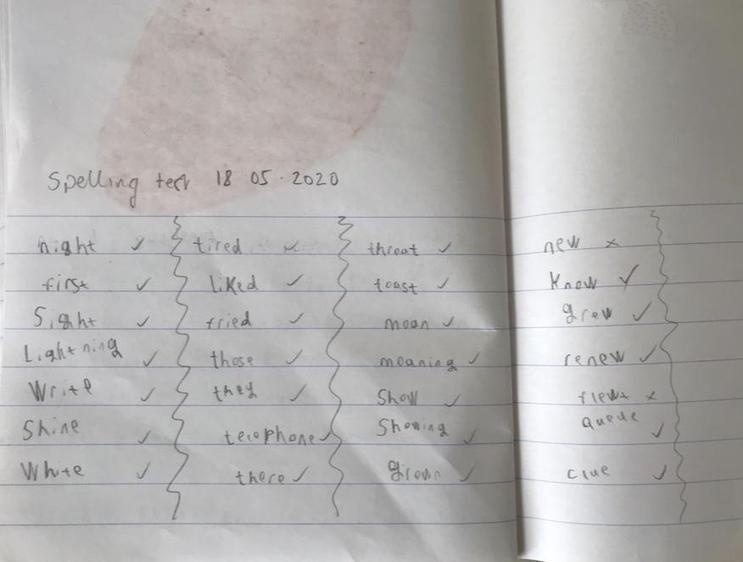 Spelling test 18 05.2020
night tired throat new
first liked toast know
Sight moan grew
Lightning those moaning renew
Write they Show
Shine telephone Showing queue
White there grown clue